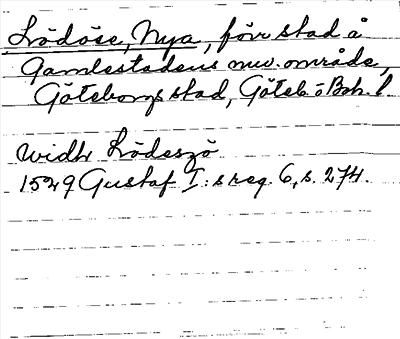 Lödöse, Nya, förr stad å
Gamlestadens nuv. område,
Göteborgs stad, Göteb. o Boh. l.
widh Lödeszö
1529 Gustaf I:s reg. 6, s. 274.